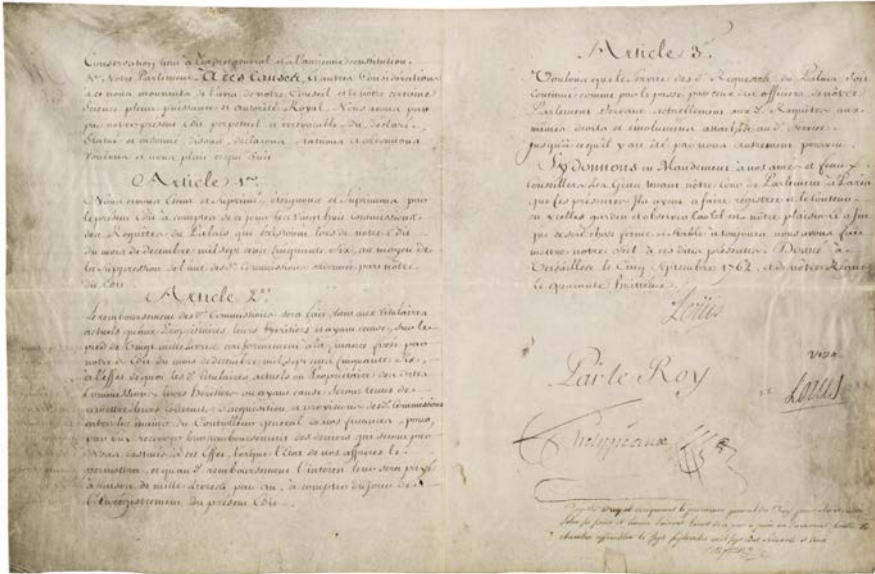 Conservation tant à l'ordre general et a l'ancienne constitution
de Notre Parlement. A ces Causes, et autres Considerations
a ce nous mouvants de l'avis de notre Conseil et de notre certaine
Science pleine puissance et autorité Royal, Nous avons par
par notre present Edit perpetuel et irrévocable dit, déclaré,
Statué et ordonné, disons, déclarons, statuons et ordonnons
voulons et nous plait ce qui suit
Article 1er
Nous avons Eteint et Suprimé, éteignons et Suprimons par
le present Edit à compter de ce jour les Vingt huit Commissions
des Requêtes du Palais qui existoient lors de notre Edit
du mois de decembre mil sept cent Cinquante Six, au moyen de
la Suppression de l'une des dtes Commissions ordonnée par notre
dit Edit.
Article 2e
Le remboursement des dtes Commissions sera fait, tant aux titulaires
actuels qu'aux Propriétaires, leurs héritiers et ayant cause, sur le
pied de Vingt mille livres conformement à la finance fixée par
notre dit Edit du mois de decembre mil sept cent Cinquante Six,
à l'effet de quoi les dts titulaires actuels ou Propriétaires des dites
Commissions, leurs Heritiers ou ayans cause seront tenus de
remettre leurs Contrats d'acquisition et provisions des dtes Commissions
entre les mains du Controlleur general de nos finances, pour,
par eux recevoir leur remboursement des deniers qui seront par
Nous destinés à cet effet, lorsque l'Etat de nos affaires le
permettra, et quant au dt remboursement l'interest leur sera payé
à raison de mille livres par an, à compter du jour de
l'Enregistrement du présent Edit.
Article 3e
Voulons que le Service des dtes Requestes du Palais soit
Continué comme par le passé par ceux des officiers de notre
Parlement Servans actuellement aux dtes Requêtes aux
mêmes droits et émolumens attachés au dt Service
jusqu'à ce qu'il y ait été par nous autrement pourvu.
Sy Donnons en Mandement à nos amés et feaux
Conseillers les Gens tenant nôtre Cour de Parlement à Paris
que ces presentes Ils ayent à faire registrer et le contenu
en icelles garder et observer car tel est nôtre plaisir et afin
que ce soit chose ferme et stable à toujours nous avons fait
mettre notre Scel à ces dites présentes. Donné à
Versailles le Cinq Septembre 1762. et de nôtre Regne
le quarante huitieme.
Louis
Visa
Par le Roy
Louis
Phelypeaux